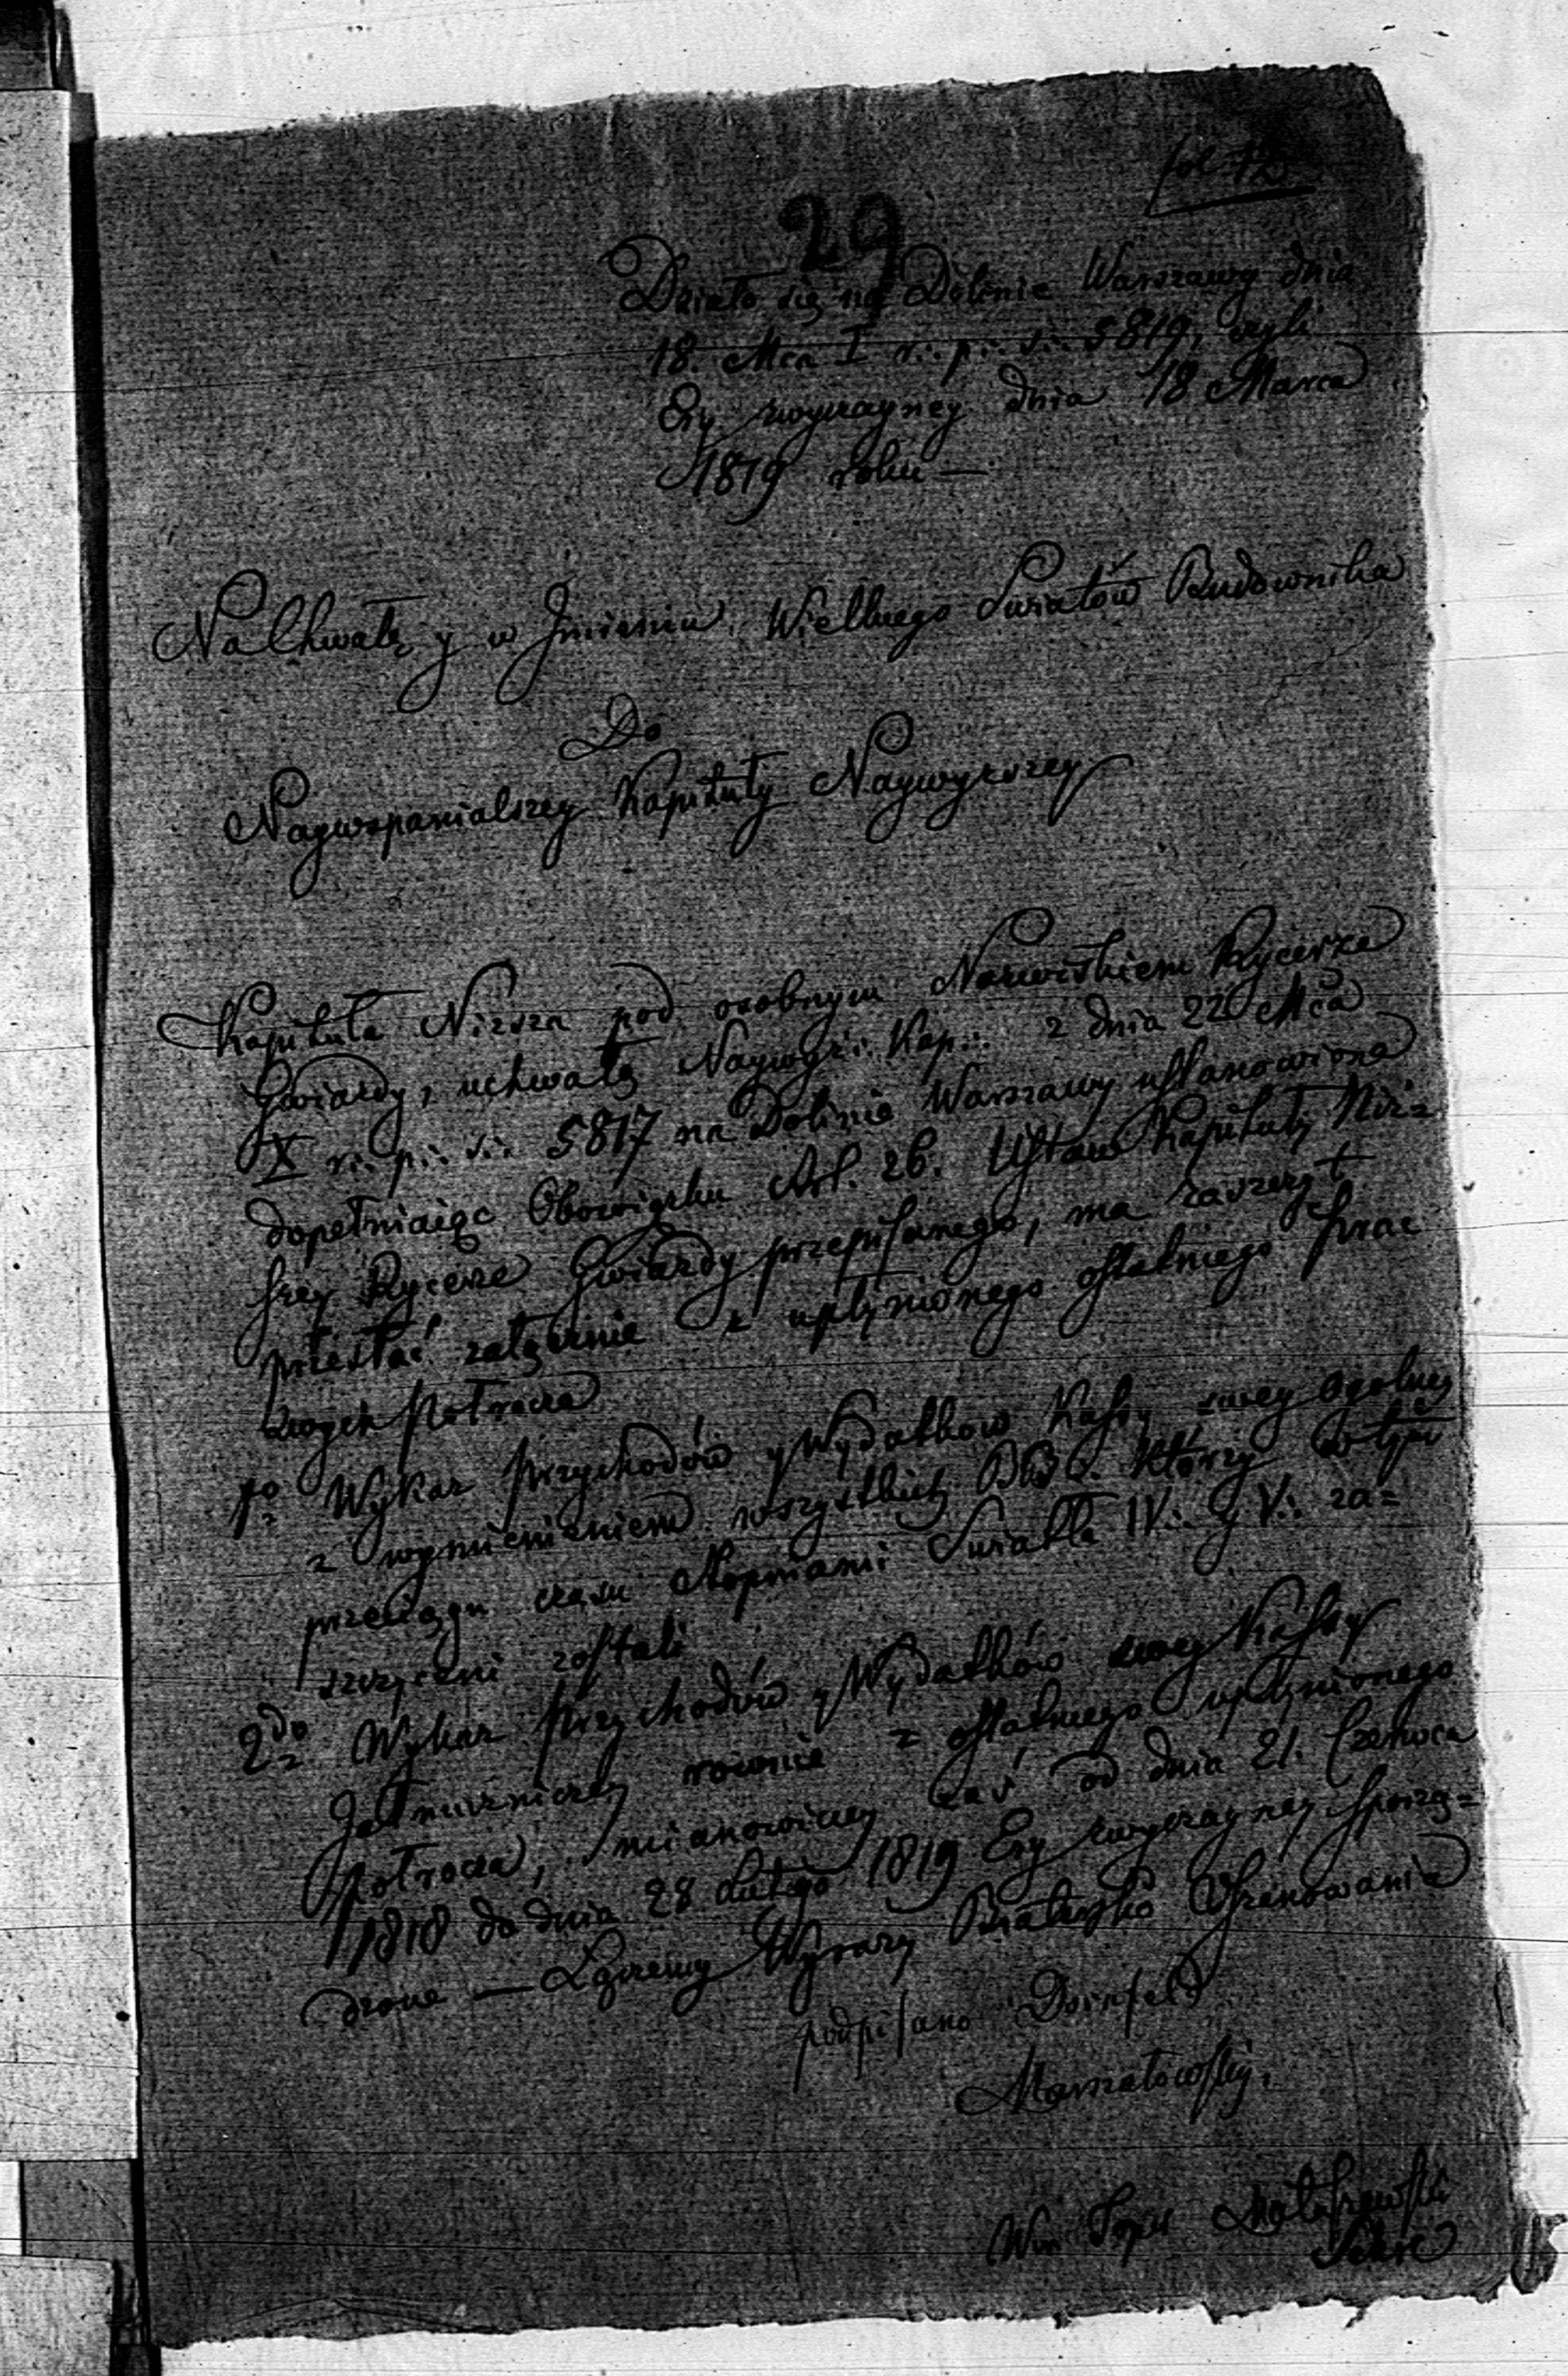 fol 12
29
Działo się na Dolinie Warszawy dnia
18. Mca I r∴ p∴ ś∴ 5819, czyli
Ery zwyczayney dnia 18 Marca
1819 roku —
Na Chwałę y w Jmieniu Wielkiego Swiatów Budownika
Do
Naywspanialszey Kapituły Naywyższey
Kapituła Niższa pod osobnym Nazwiskiem Rycerze
Gwiazdy, uchwałą Naywyż∴ Kap∴ z dnia 22 Mca
X r∴ p∴ ś∴ 5817 na Dolinie Warszawy ustanowiona
dopełniaiąc Obowiązku Art. 26. Ustaw Kapituły Niż=
szey Rycerze Gwiazdy przepisanego, ma zaszczyt
przesłać załącznie z upłynionego ostatniego prac
swoych Półrocza
1o Wykaz przychodów y Wydatkow Kassy swey ogolney
z wymienieniem wszystkich BB∴ którzy w tym
przeciągu czasu Stopniami Swiatła IV∴ y V∴ za=
szczyceni zostali
2do Wykaz Przychodów y Wydatków swey Kassy
Jałmużniczey rownie z ostatniego upłynionego
połrocza, mianowiciey zaś od dnia 21. Czerwca
1818 do dnia 28 Lutego 1819 Ery zwyczayney sporzą=
dzone — Łączemy Wyrazy Bratersko Szanowania
podpisano Dornfeld
Marszałowsky,
Sekre